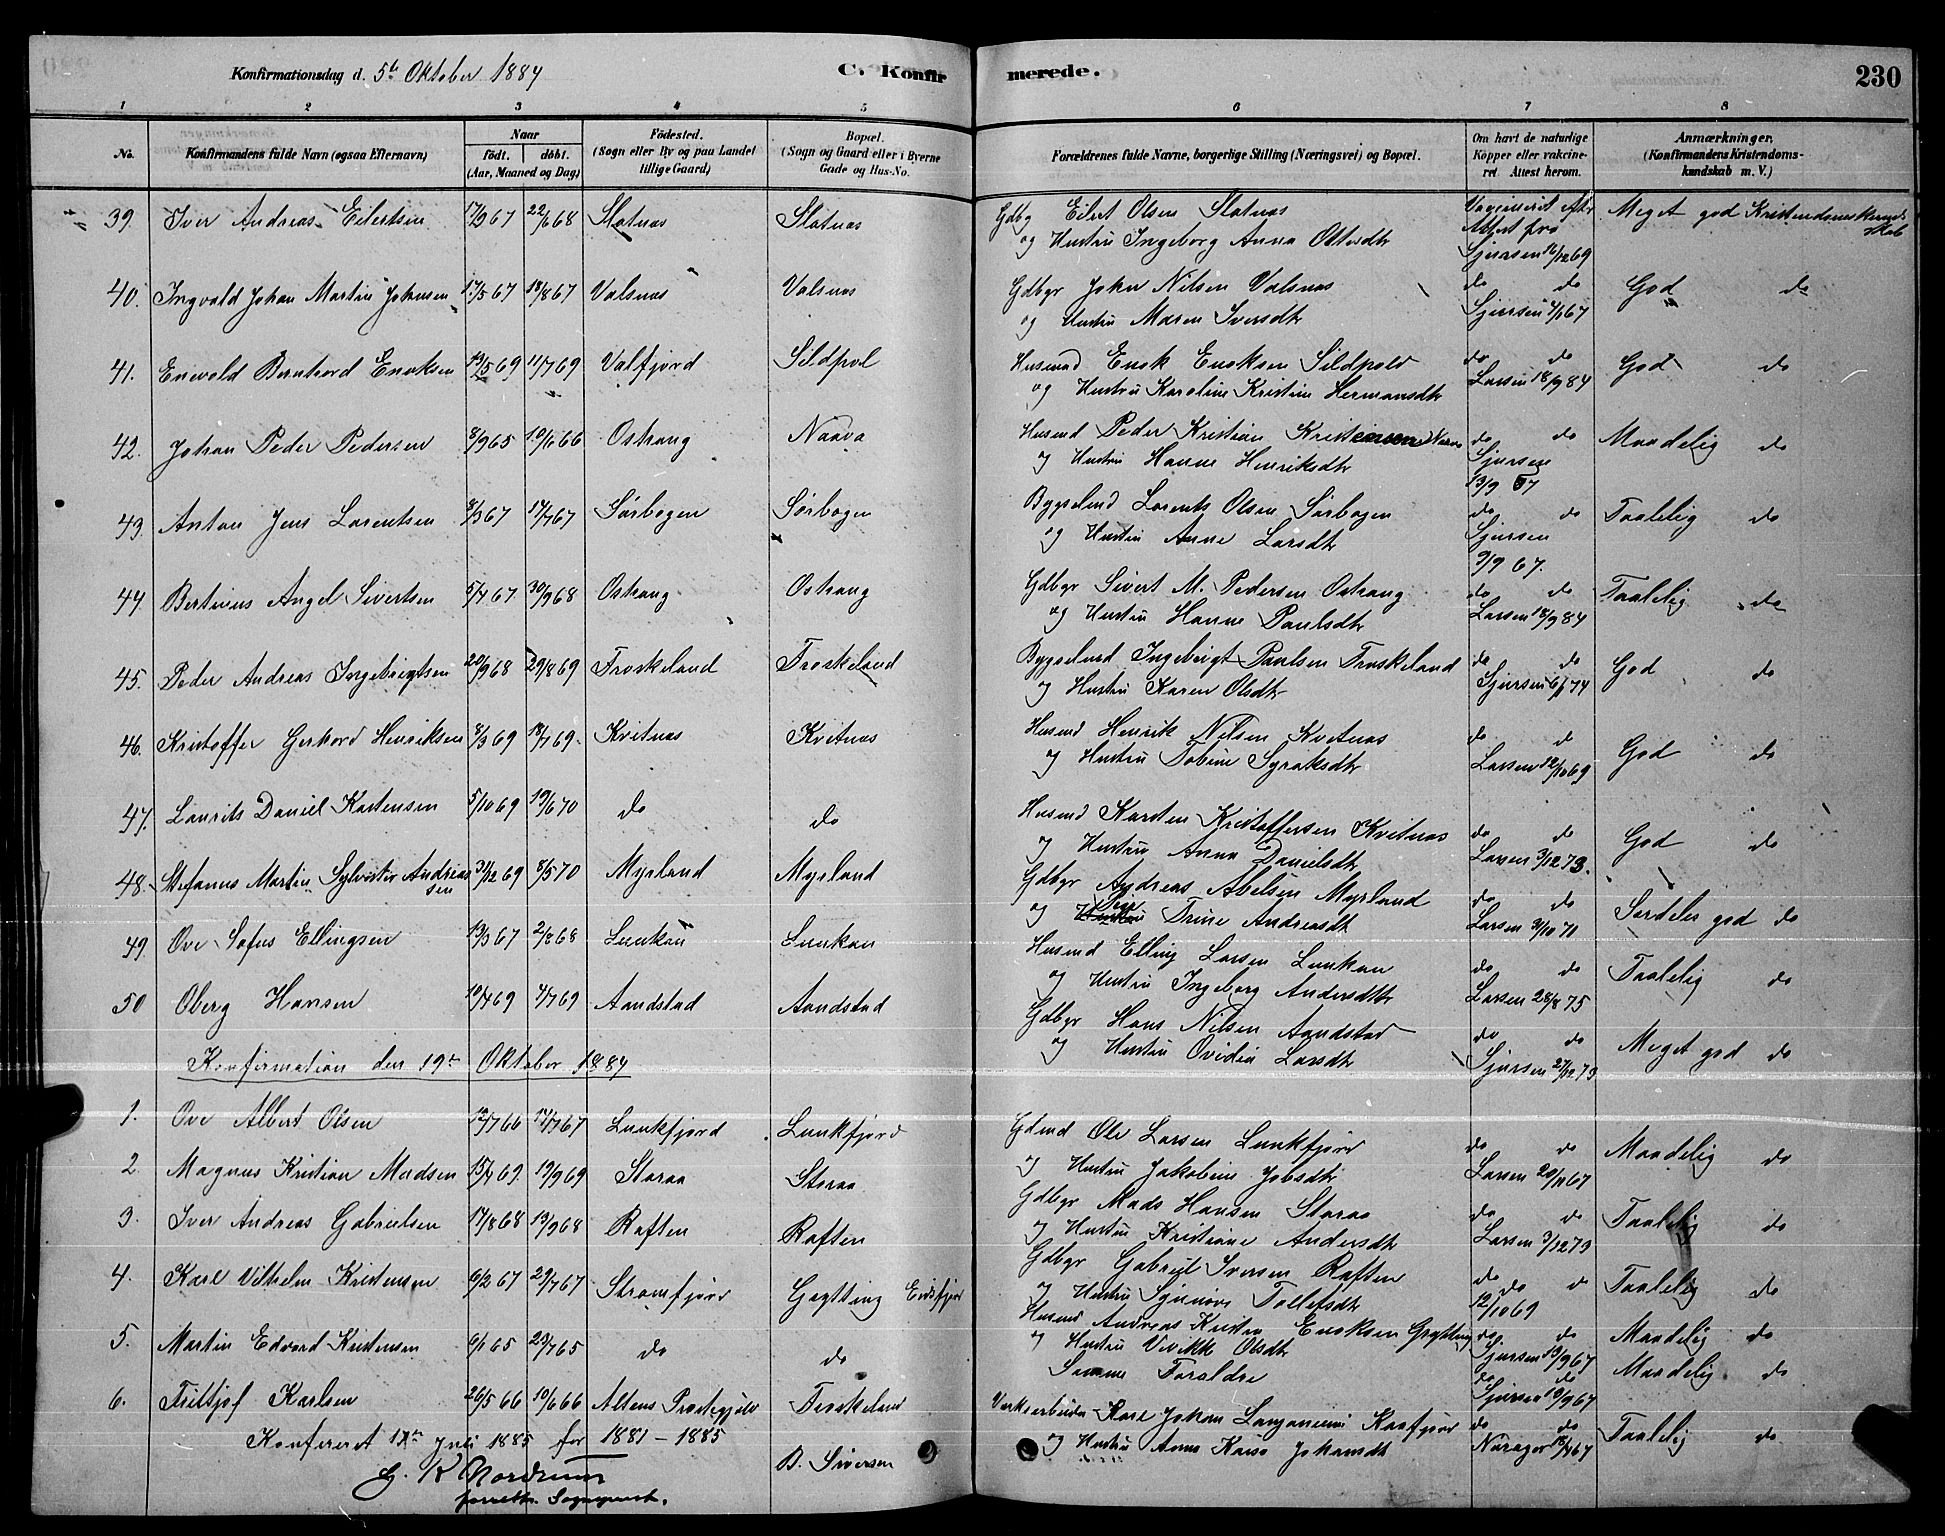 Konfirmationsdag d. 5te Oktober 1884
C. Konfirmerede.
230
1 2 3 4 5 6 7 8
No.
Konfirmandens fulde Navn (ogsaa Efternavn)
Naar
födt. döbt.
(Aar, Maaned og Dag)
Födested.
(Sogn eller By og paa Landet
lillige Gaard)
Bopæl.
(Sogn og Gaard eller i Byerne
Gade og Hus-No.
Forældrenes fulde Navne, borgerlige Stilling (Næringsvei) og Bopæl.
Om havt de naturlige
Kopper eller vakcine-
ret. Attest herom.
Anmærkninger,
(Konfirmandens Kristendoms-
kundskab m. V.)
39. Iver Andreas Eilertsen 17/9 67 22/6 68 Slotnæs Slotnæs Gdbg Eilert Olsen Slotnæs Meget god Kristendomskund-
skab
og Hustru Ingeborg Anna Ottersdtr Attest fra
Sjursen 16/12 69
40. Ingvald Johan Martin Johnsen 17/5 67 18/8 67 Valsnæs Valsnæs Gdbgr John Nilsen Valsnæs do do God do
og Hustru Maren Iversdtr Sjursen
41. Enevold Berntord Enoksen 13/5 69 11/7 69 Valfjord Sildpol Husmd Enok Enoksen Sildpold do do God do
og Hustru Karoline Kristine Hermansdtr Larsen 18/9 84
42. Johan Peder Pedersen 8/9 65 10/6 66 Ostrang Naava Husmd Peder Kristian Kristensen Naava do do Maadelig do
og Hustru Hanne Henriksdtr Sjursen
13/9 67
43. Anton Jens Lorentsen 8/3 67 17/7 67 Sørbogen Sørbogen Bygselmd Lorents Olsen Sørbogen do do Taalelig do
og Hustru Anne Larsdtr Sjursen
9/9 67.
44. Bertinus Angel Sivertsen 5/7 67 30/9 68 Ostrang Ostrang Gdbgr Sivert M. Pedersen Ostrang do do Taalelig do
og Hustru Hanne Paulsdtr Larsen 18/9 84
45. Peder Andreas Ingebrigtsen 20/9 68 29/8 69 Froskeland Froskeland Bygselmd Ingebrigt Paulsen Froskeland do do God do
og Hustru Karen Olsdtr Sjursen 6/1 74
46. Kristoffer Gerhard Henriksen 8/3 69 18/7 69 Kvitnæs Kvitnæs Husmd Henrik Nilsen Kvitnæs do do God do
og Hustru Tobine Syraksdtr Larsen 12/10 69
47. Laurits Daniel Karstensen 5/10 69 19/6 70 do do Husmd Karsten Kristoffersen Kvitnæs do do God do
og Hustru Anna Danielsdtr Larsen 3/12 73.
48. Stefanus Martin Sylvester Andreas-
sen 31/12 69 8/5 70 Myrland Myrland Gdbgr Andreas Abelsen Myrland do do Særdeles god do
og Trine Andreasdt Larsen 31/10 71
49. Ove Sofus Ellingsen 13/3 67 2/8 68 Lunkan Lunkan Husmd Elling Larsen Lunkan do do Taalelig do
og Hustru Ingeborg Andersdtr Larsen 28/8 75
50 Oberg Hansen 10/4 69 4/7 69 Aandstad Aandstad Gdbgr Hans Nilsen Aandstad do do Meget god do
og Hustru Ovidia Larsdtr Sjursen 27/12 73
Konfirmation den 19de Oktober 1884
1. Ove Albert Olsen 12/7 66 17/7 67 Lunkfjord Lunkfjord Gdmd Ole Larsen Lunkfjord do do Maadelig do
og Hustru Jakobine Jobsdtr Larsen 20/11 67
2. Magnus Kristian Madsen 15/7 69 19/9 69 Storaa Storaa Gdbgr Mads Hansen Storaa do do Taalelig do
og Hustru Kristiane Andersdtr Larsen 3/12 73
3. Iver Andreas Gabrielsen 17/8 68 13/9 68 Raften Raften Gdbgr Gabriel Iversen Raften do do do Taalelig do
og Hustru Synnøve Tollefsdtr 12/10 69
4. Karl Vilhelm Kristensen 6/2 67 29/7 67 Strømfjord Grytting Eidsfjord Husmd Andreas Kristen Enoksen Grytting do do Maadelig do
og Hustru Vivikke Olsdtr Sjursen 13/9 67
5. Martin Edvard Kristensen 6/1 65 23/7 65 do do Samme Forældre do do Maadelig do
Sjursen 13/9 67
6. Fritjof Karlsen 26/5 66 10/6 66 Altens Prestegjæld Froskeland Verksarbeider Karl Johan Kaafjord do do Taalelig do
og Hustru Anna Kaisa Johansdt
Konfereret 17de Juli 1885 for 1881 – 1885
G. K Nordrum B. Siversen
forrettn. Sogneprest.